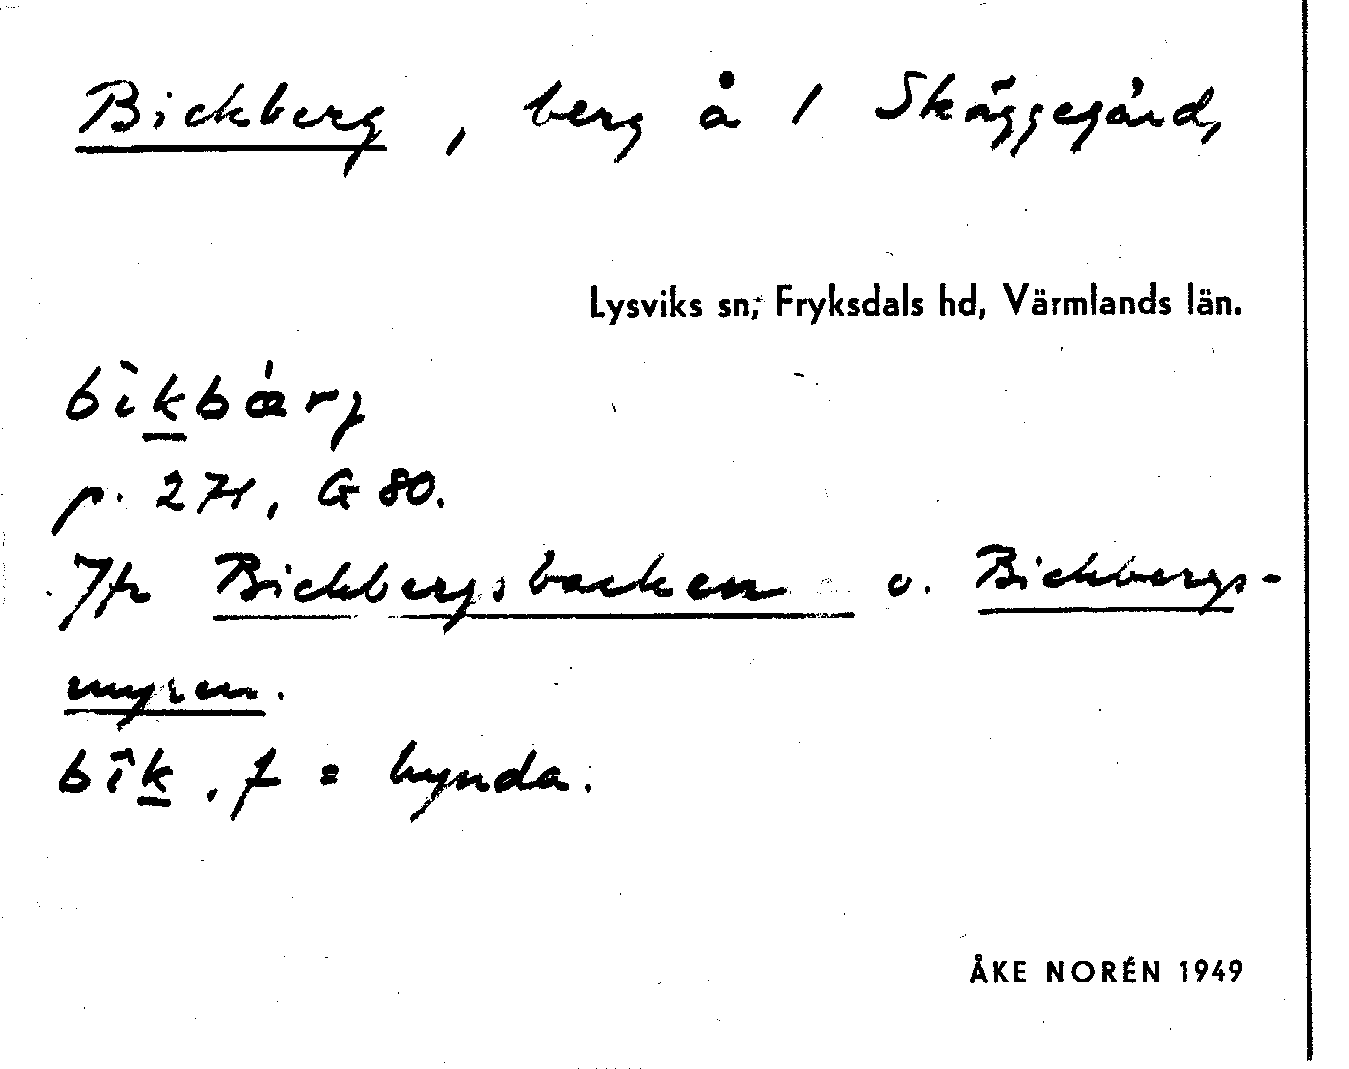 Bickberg, berg å 1 Skäggegård,
Lysviks sn, Fryksdals hd, Värmlands län.
bìkbǽrj
p. 271, G 80.
Jfr Bickbergsbacken o. Bickbergs-
myren.
bîk, f = hynda.
ÅKE NORÉN 1949